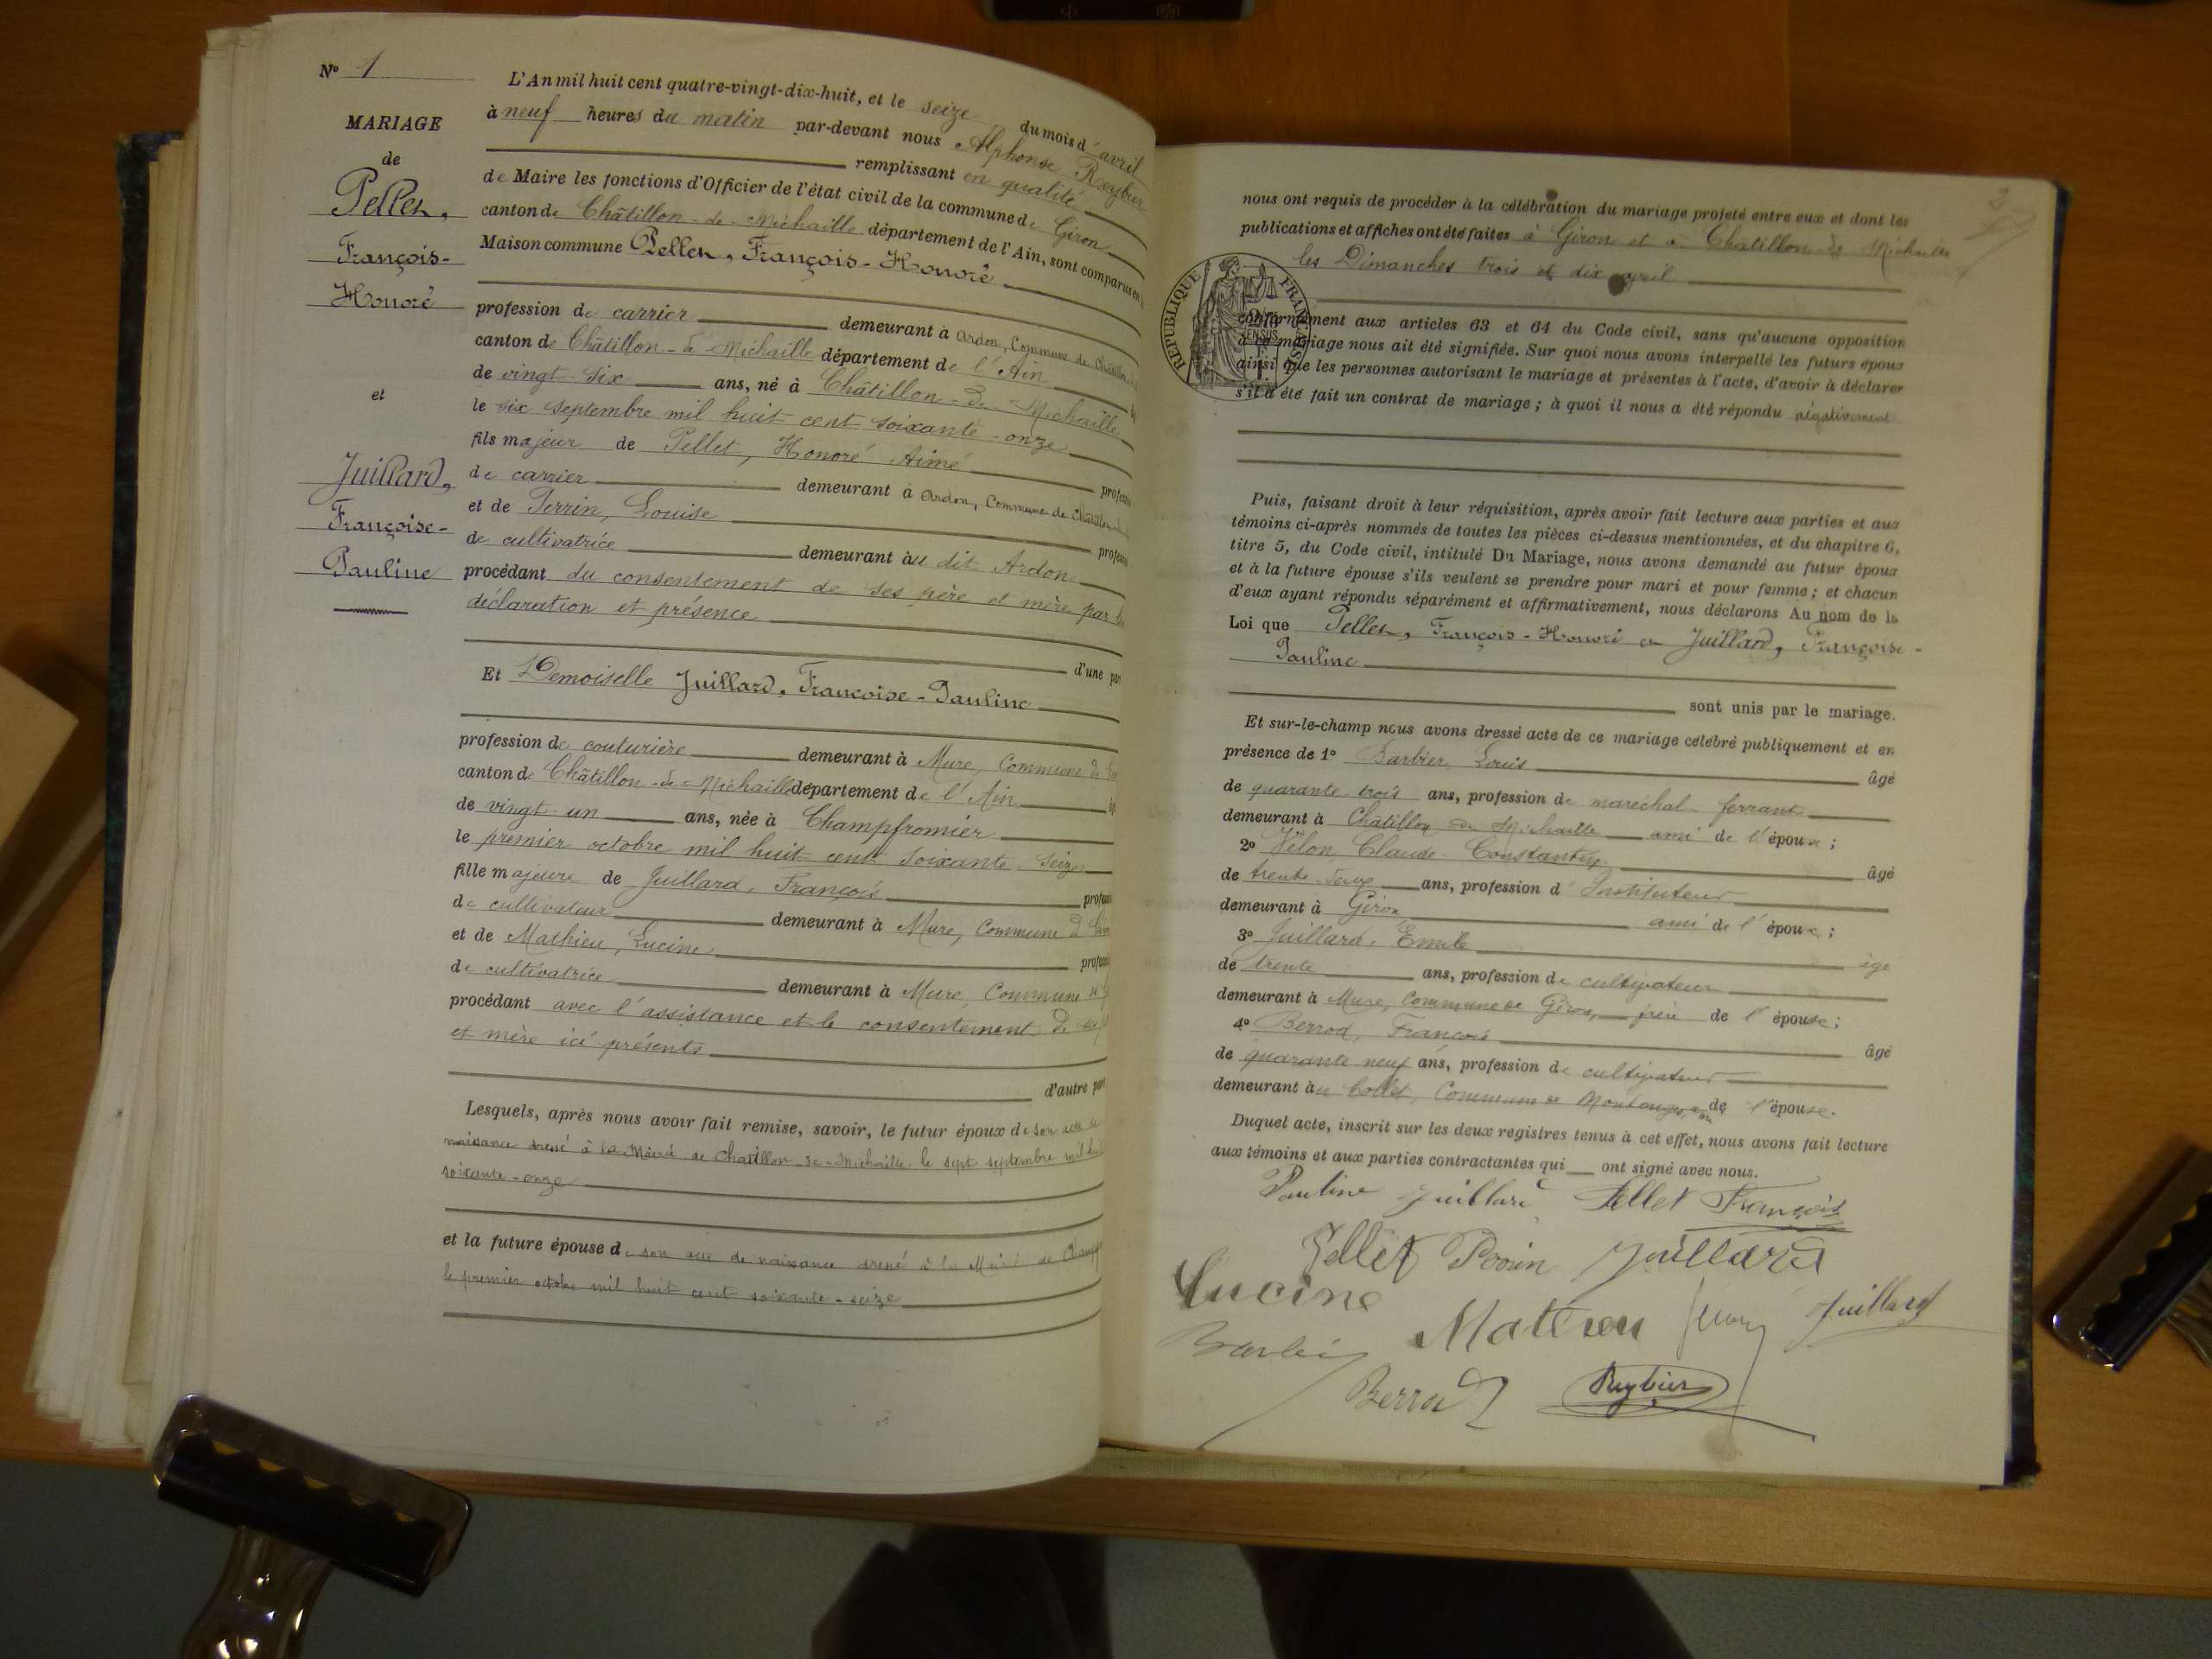 N° 1
MARIAGE
de
Pellet,
François-
Honoré
et
Juillard,
Françoise-
Pauline
L'An mil huit cent quatre-vingt-dix-huit, et le seize du mois d'avril
à neuf heures du matin par-devant nous Alphonse Reybier
remplissant en qualité
de Maire les fonctions d'Officier de l'état civil de la commune de Giron
canton de Châtillon-de-Michaille département de l'Ain, sont comparus en
Maison commune Pellet, François-Honoré
profession de carrier demeurant à Ardon, Commune de
canton de Châtillon-de-Michaille département de l'Ain
de vingt-six ans, né à Châtillon-de-Michaille
le six septembre mil huit cent soixante-onze
fils majeur de Pellet, Honoré Aimé
de carrier demeurant à Ardon, Commune de
et de Perrin, Louise
de cultivatrice demeurant au dit Ardon
procédant du consentement de ses père et mère par
déclaration et présence
d'une part
Et Demoiselle Juillard, Françoise-Pauline
profession de couturière demeurant à Mure, Commune de
canton de Châtillon-de-Michaille département de l'Ain
de vingt-un ans, née à Champfromier
le premier octobre mil huit cent soixante-seize
fille majeure de Juillard, François
de cultivateur demeurant à Mure, Commune
et de Mathieu, Lucine
de cultivatrice demeurant à Mure, Commune
procédant avec l'assistance et le consentement de
et mère ici présents
d'autre part
Lesquels, après nous avoir fait remise, savoir, le futur époux de son acte de
naissance dressé à la Mairie de Châtillon-de-Michaille le sept septembre mil huit
soixante-onze
et la future épouse de son acte de naissance dressé à la Mairie de
le premier octobre mil huit cent soixante-seize
2
nous ont requis de procéder à la célébration du mariage projeté entre eux et dont les
publications et affiches ont été faites à Giron et à Chatillon de Michaille
les Dimanches trois et dix avril
RÉPUBLIQUE FRANÇAISE
conformément aux articles 63 et 64 du Code civil, sans qu'aucune opposition
à ce mariage nous ait été signifiée. Sur quoi nous avons interpellé les futurs époux
ainsi que les personnes autorisant le mariage et présentes à l'acte, d'avoir à déclarer
s'il a été fait un contrat de mariage ; à quoi il nous a été répondu négativement
Puis, faisant droit à leur réquisition, après avoir fait lecture aux parties et aux
témoins ci-après nommés de toutes les pièces ci-dessus mentionnées, et du chapitre 6,
titre 5, du Code civil, intitulé Du Mariage, nous avons demandé au futur époux
et à la future épouse s'ils veulent se prendre pour mari et pour femme ; et chacun
d'eux ayant répondu séparément et affirmativement, nous déclarons Au nom de la
Loi que Pellet, François-Honoré et Juillard, Françoise-
Pauline
sont unis par le mariage.
Et sur-le-champ nous avons dressé acte de ce mariage célébré publiquement et en
présence de 1° Barbier, Louis âgé
de quarante-trois ans, profession de maréchal-ferrant
demeurant à Châtillon de Michaille ami de l'époux ;
2° Vélon, Claude-Constantin âgé
de trente-deux ans, profession d'Instituteur
demeurant à Giron ami de l'époux ;
3° Juillard, Emile âgé
de trente ans, profession de cultivateur
demeurant à Mure, Commune de Giron, frère de l'épouse ;
4° Berrod, François âgé
de quarante neuf ans, profession de cultivateur
demeurant au Collet, Commune de Montanges, ami de l'épouse.
Duquel acte, inscrit sur les deux registres tenus à cet effet, nous avons fait lecture
aux témoins et aux parties contractantes qui ont signé avec nous.
Pauline Juillard Pellet François
Pellet Perrin Juillard
Lucine Mathieu Juillard
Barbier
Berrod Reybier